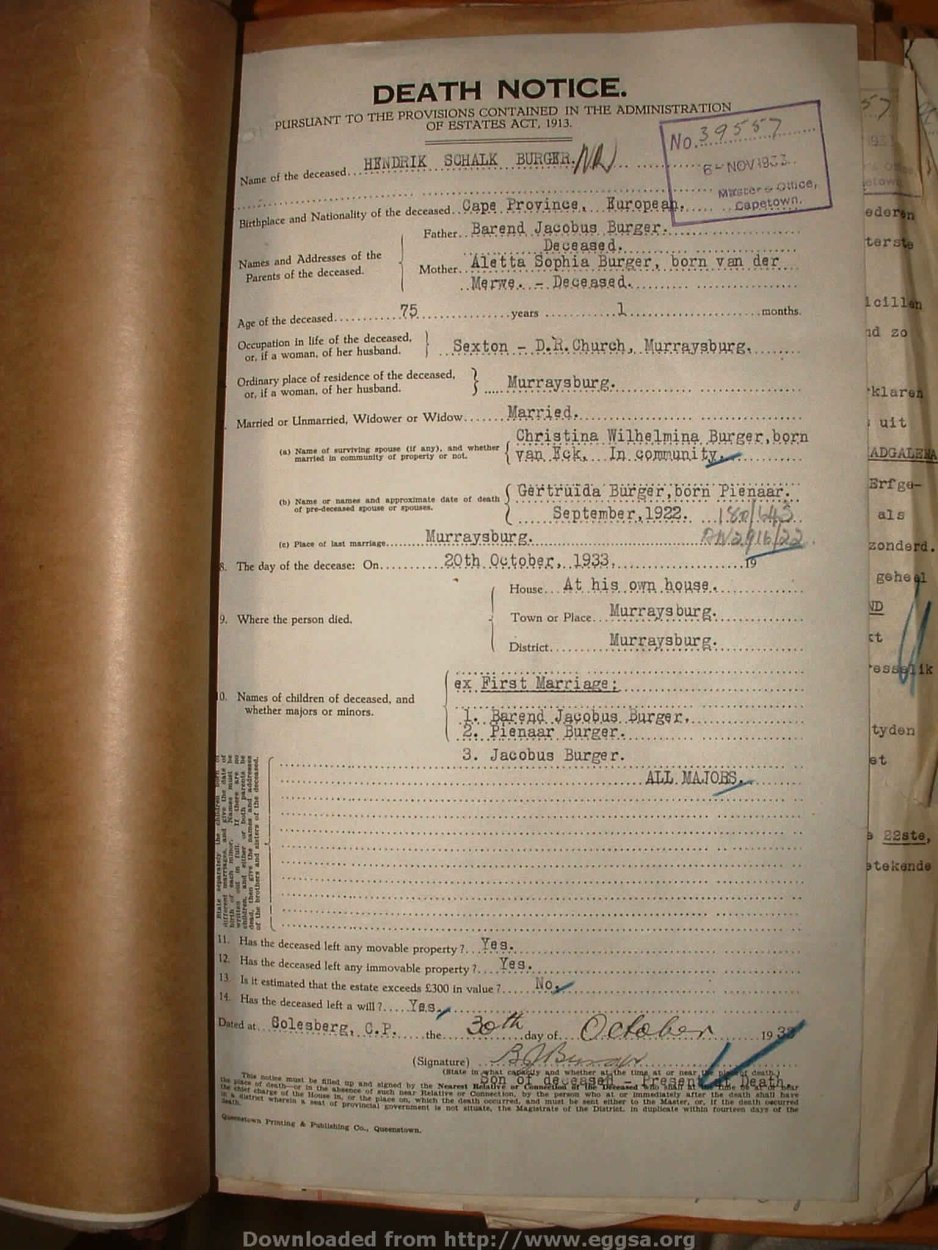 DEATH NOTICE.
PURSUANT TO THE PROVISIONS CONTAINED IN THE ADMINISTRATION
OF ESTATES ACT, 1913.
No. 39557
6 - NOV 1933
Master's Office,
Capetown.
Name of the deceased HENDRIK SCHALK BURGER.
Birthplace and Nationality of the deceased Cape Province, European.
Names and Addresses of the Parents of the deceased.
Father Barend Jacobus Burger.
Deceased.
Mother Aletta Sophia Burger, born van der
Merwe. - Deceased.
Age of the deceased 75 years 1 months.
Occupation in life of the deceased,
or, if a woman, of her husband.
Sexton - D.R.Church, Murraysburg.
Ordinary place of residence of the deceased,
or, if a woman, of her husband.
Murraysburg.
Married or Unmarried, Widower or Widow Married.
(a) Name of surviving spouse (if any), and whether
married in community of property or not.
Christina Wilhelmina Burger, born
van Eck. In community.
(b) Name or names and approximate date of death
of pre-deceased spouse or spouses.
Gertruida Burger, born Pienaar.
September, 1922.
2916/22
(c) Place of last marriage Murraysburg.
8. The day of the decease: On 20th October, 1933, 19
9. Where the person died.
House At his own house.
Town or Place Murraysburg.
District Murraysburg.
0. Names of children of deceased, and
whether majors or minors.
ex First Marriage:
1. Barend Jacobus Burger.
2. Pienaar Burger.
3. Jacobus Burger.
ALL MAJORS.
State separately the children born of
different marriages, and give the date of
birth of each minor. Names must be
written out in full. If there are no
children, and either or both parents be
dead, then give the names and addresses
of the brothers and sisters of the deceased.
11. Has the deceased left any movable property? Yes.
12. Has the deceased left any immovable property? Yes.
13 Is it estimated that the estate exceeds £300 in value? No.
14. Has the deceased left a will? Yes.
Dated at Colesberg, C.P. the 30th day of October 1933
(Signature) B J Burger
(State in what capacity and whether at the time at or near the place of death.)
Son of deceased - Present at Death.
This notice must be filled up and signed by the Nearest Relative or Connection of the Deceased who shall at the time be at or near
the place of death—or in the absence of such near Relative or Connection, by the person who at or immediately after the death shall have
the chief charge of the House in, or the place on, which the death occurred, and must be sent either to the Master, or, if the death occurred
in a district wherein a seat of provincial government is not situate, the Magistrate of the District, in duplicate within fourteen days of the
death.
Queenstown Printing & Publishing Co., Queenstown.
ederen
terste
icillen
nd zo
rklaren
uit
ADGALENA
Erfge-
als
zonderd.
geheel
ND
kt
tyden
et
22ste,
etekende
Downloaded from http://www.eggsa.org